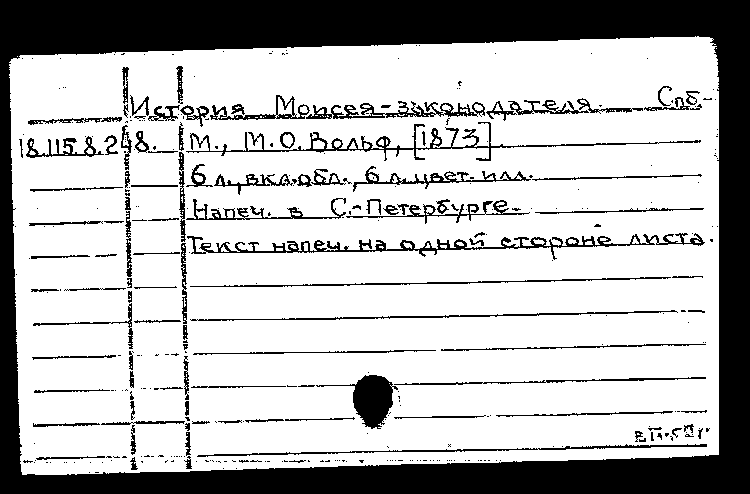 История Моисея-законодателя. Спб.-
18.115.8.248. М., М.О. Вольф, [1873].
6 л., вкл. обл., 6 л. цвет. илл.
Напеч. в С.-Петербурге.
Текст напеч. на одной стороне листа.